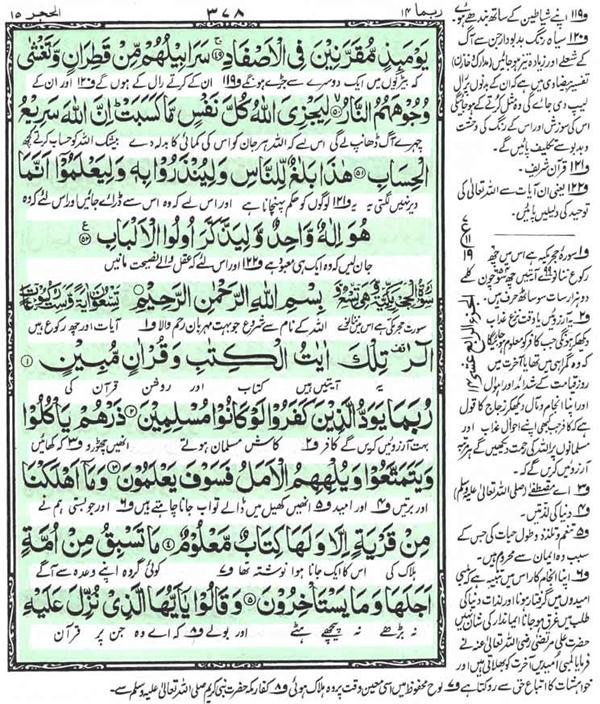 ربما ۱۴
۳۷۸
الحجر ۱۵
يَوْمَئِذٍ مُّقَرَّنِيْنَ فِى الْاَصْفَادِ ۴۹ سَرَابِيْلُهُمْ مِّنْ قَطِرَانٍ وَّتَغْشٰى
کہ بیڑیوں میں ایک دوسرے سے جڑے ہوں گے و۱۱۹ ان کے کرتے رال کے ہوں گے و۱۲۰ اور ان کے
وُجُوْهَهُمُ النَّارُ ۵۰ لِيَجْزِىَ اللّٰهُ كُلَّ نَفْسٍ مَّا كَسَبَتْ اِنَّ اللّٰهَ سَرِيْعُ
چہرے آگ ڈھانپ لے گی اس لئے کہ اللہ ہر جان کو اس کی کمائی کا بدلہ دے بیشک اللہ کو حساب کرتے کچھ
الْحِسَابِ ۵۱ هٰذَا بَلٰغٌ لِّلنَّاسِ وَلِيُنْذَرُوْا بِهٖ وَلِيَعْلَمُوْۤا اَنَّمَا
دیر نہیں لگتی یہ و۱۲۱ لوگوں کو حکم پہنچانا ہے اور اس لئے کہ وہ اس سے ڈرائے جائیں اور اس لئے کہ وہ
هُوَ اِلٰهٌ وَّاحِدٌ وَّلِيَذَّكَّرَ اُولُوا الْاَلْبَابِ ۵۲
جان لیں کہ وہ ایک ہی معبود ہے و۱۲۲ اور اس لئے کہ عقل والے نصیحت مانیں
بِسْمِ اللّٰهِ الرَّحْمٰنِ الرَّحِيْمِ
سورت حجر مکی ہے اس میں ننانوے اللہ کے نام سے شروع جو بہت مہربان رحم والا و۱ آیات اور چھ رکوع ہیں
الٓرٰ تِلْكَ اٰيٰتُ الْكِتٰبِ وَقُرْاٰنٍ مُّبِيْنٍ ۱
یہ آیتیں ہیں کتاب اور روشن قرآن کی
رُبَمَا يَوَدُّ الَّذِيْنَ كَفَرُوْا لَوْ كَانُوْا مُسْلِمِيْنَ ۲ ذَرْهُمْ يَاْكُلُوْا
بہت آرزوئیں کریں گے کافر و۲ کاش مسلمان ہوتے انھیں چھوڑو و۳ کہ کھائیں
وَيَتَمَتَّعُوْا وَيُلْهِهِمُ الْاَمَلُ فَسَوْفَ يَعْلَمُوْنَ ۳ وَمَاۤ اَهْلَكْنَا
اور برتیں و۴ اور امید و۵ انھیں کھیل میں ڈالے تو اب جانا چاہتے ہیں و۶ اور جو بستی ہم نے
مِنْ قَرْيَةٍ اِلَّا وَلَهَا كِتَابٌ مَّعْلُوْمٌ ۴ مَا تَسْبِقُ مِنْ اُمَّةٍ
ہلاک کی اس کا ایک جانا ہوا نوشتہ تھا و۷ کوئی گروہ اپنے وعدہ سے آگے
اَجَلَهَا وَمَا يَسْتَاْخِرُوْنَ ۵ وَقَالُوْا يٰۤاَيُّهَا الَّذِىْ نُزِّلَ عَلَيْهِ
نہ بڑھے نہ پیچھے ہٹے اور بولے و۸ کہ اے وہ جن پر قرآن
و۱۱۹ اپنے شیاطین کے ساتھ بندھے ہوئے
و۱۲۰ سیاہ رنگ بدبودار جن سے آگ
کے شعلے اور زیادہ تیز ہوجائیں (مدارک و خازن)
تفسیر بیضاوی میں ہے کہ ان کے بدنوں پر رال
لیپ دی جائے گی وہ مثل کرتے کے ہوجائے گی
اس کی سوزش اور اس کے رنگ کی وحشت
و بدبو سے تکلیف پائیں گے۔
و۱۲۱ قرآن شریف۔
و۱۲۲ یعنی ان آیات سے اللہ تعالیٰ کی
توحید کی دلیلیں پائیں۔
ع ۱۱ ۱۹
الجزء الرابع عشر ۱۴
و۱ سورۂ حجر مکیہ ہے اس میں چھ
رکوع ننانوے ۹۹ آیتیں چھ سو چون کلمے
دو ہزار سات سو ساٹھ حرف ہیں۔
و۲ یہ آرزوئیں یا وقت نزع عذاب
دیکھ کر ہوں گی جب کافر کو معلوم ہوجائے گا
کہ وہ گمراہی میں تھا یا آخرت میں
روز قیامت کے شدائد اور اہوال
اور اپنا انجام و مآل دیکھ کر زجاج کا قول
ہے کہ کافر جب کبھی اپنے احوال عذاب اور
مسلمانوں پر اللہ کی رحمت دیکھیں گے ہر مرتبہ
آرزوئیں کریں گے کہ۔
و۳ اے مصطفےٰ (صلی اللہ تعالیٰ علیہ وسلم)
و۴ دنیا کی لذتیں۔
و۵ تنعم و تلذذ و طول حیات کی جس کے
سبب وہ ایمان سے محروم ہیں۔
و۶ اپنا انجام کار اس میں تنبیہ ہے کہ لمبی
امیدوں میں گرفتار ہونا اور لذات دنیا کی
طلب میں غرق ہوجانا ایماندار کی شان نہیں
حضرت علی مرتضیٰ رضی اللہ تعالیٰ عنہ نے
فرمایا لمبی امیدیں آخرت کو بھلاتی ہیں اور
خواہشات کا اتباع حق سے روکتا ہے و۷ لوح محفوظ میں اسی معین وقت پر وہ ہلاک ہوئی و۸ کفار مکہ حضرت نبی کریم صلی اللہ تعالیٰ علیہ وسلم سے۔